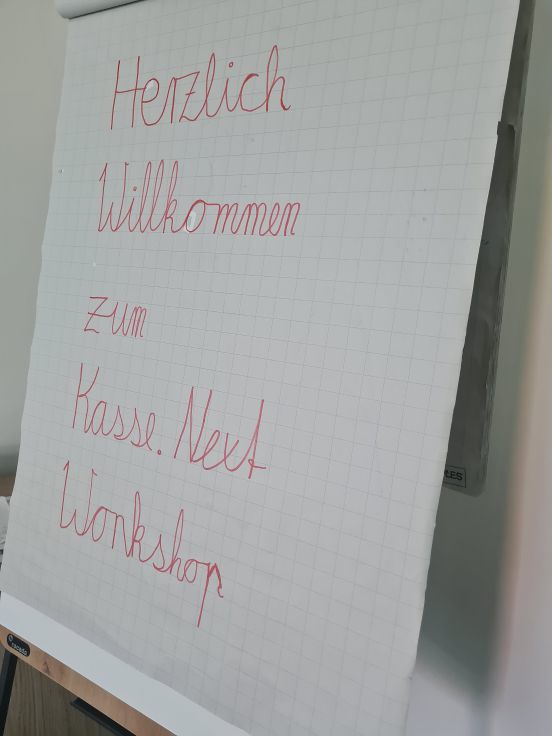 Herzlich
Willkommen
zum
Kasse. Next
Workshop
RES